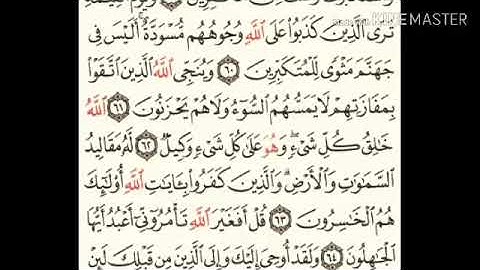 KINEMASTER
وَيَوْمَ ٱلْقِيَٰمَةِ
تَرَى ٱلَّذِينَ كَذَبُوا۟ عَلَى ٱللَّهِ وُجُوهُهُم مُّسْوَدَّةٌ ۚ أَلَيْسَ فِى
جَهَنَّمَ مَثْوًى لِّلْمُتَكَبِّرِينَ ٦٠ وَيُنَجِّى ٱللَّهُ ٱلَّذِينَ ٱتَّقَوْا۟
بِمَفَازَتِهِمْ لَا يَمَسُّهُمُ ٱلسُّوٓءُ وَلَا هُمْ يَحْزَنُونَ ٦١ ٱللَّهُ
خَٰلِقُ كُلِّ شَىْءٍ ۖ وَهُوَ عَلَىٰ كُلِّ شَىْءٍ وَكِيلٌ ٦٢ لَّهُۥ مَقَالِيدُ
ٱلسَّمَٰوَٰتِ وَٱلْأَرْضِ ۗ وَٱلَّذِينَ كَفَرُوا۟ بِـَٔايَٰتِ ٱللَّهِ أُو۟لَٰٓئِكَ
هُمُ ٱلْخَٰسِرُونَ ٦٣ قُلْ أَفَغَيْرَ ٱللَّهِ تَأْمُرُوٓنِّىٓ أَعْبُدُ أَيُّهَا
ٱلْجَٰهِلُونَ ٦٤ وَلَقَدْ أُوحِىَ إِلَيْكَ وَإِلَى ٱلَّذِينَ مِن قَبْلِكَ لَئِنْ